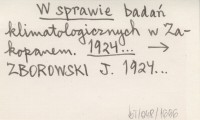 W sprawie badań
klimatologicznych w Za-
kopanem. 1924... →
ZBOROWSKI J. 1924...